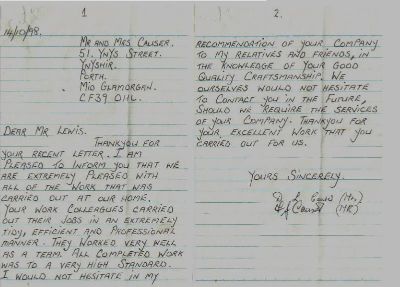 1
14/10/98.
MR AND MRS CAUSER.
51. YNYS STREET.
YNYSHIR.
PORTH.
MID GLAMORGAN.
CF39
DEAR MR LEWIS.
THANKYOU FOR
YOUR RECENT LETTER. I AM
PLEASED TO INFORM YOU THAT WE
ARE EXTREMELY PLEASED WITH
ALL OF THE WORK THAT WAS
CARRIED OUT AT OUR HOME.
YOUR WORK COLLEAGUES CARRIED
OUT THEIR JOBS IN AN EXTREMELY
TIDY, EFFICIENT AND PROFESSIONAL
MANNER. THEY WORKED VERY WELL
AS A TEAM. ALL COMPLETED WORK
WAS TO A VERY HIGH STANDARD.
I WOULD NOT HESITATE IN MY
2.
RECOMMENDATION OF YOUR COMPANY
TO MY RELATIVES AND FRIENDS, IN
THE KNOWLEDGE OF YOUR GOOD
QUALITY CRAFTSMANSHIP. WE
OURSELVES WOULD NOT HESITATE
TO CONTACT YOU IN THE FUTURE,
SHOULD WE REQUIRE THE SERVICES
OF YOUR COMPANY. THANKYOU FOR
YOUR EXCELLENT WORK THAT YOU
CARRIED OUT FOR US.
YOURS SINCERELY.
(MRS)
(MR)